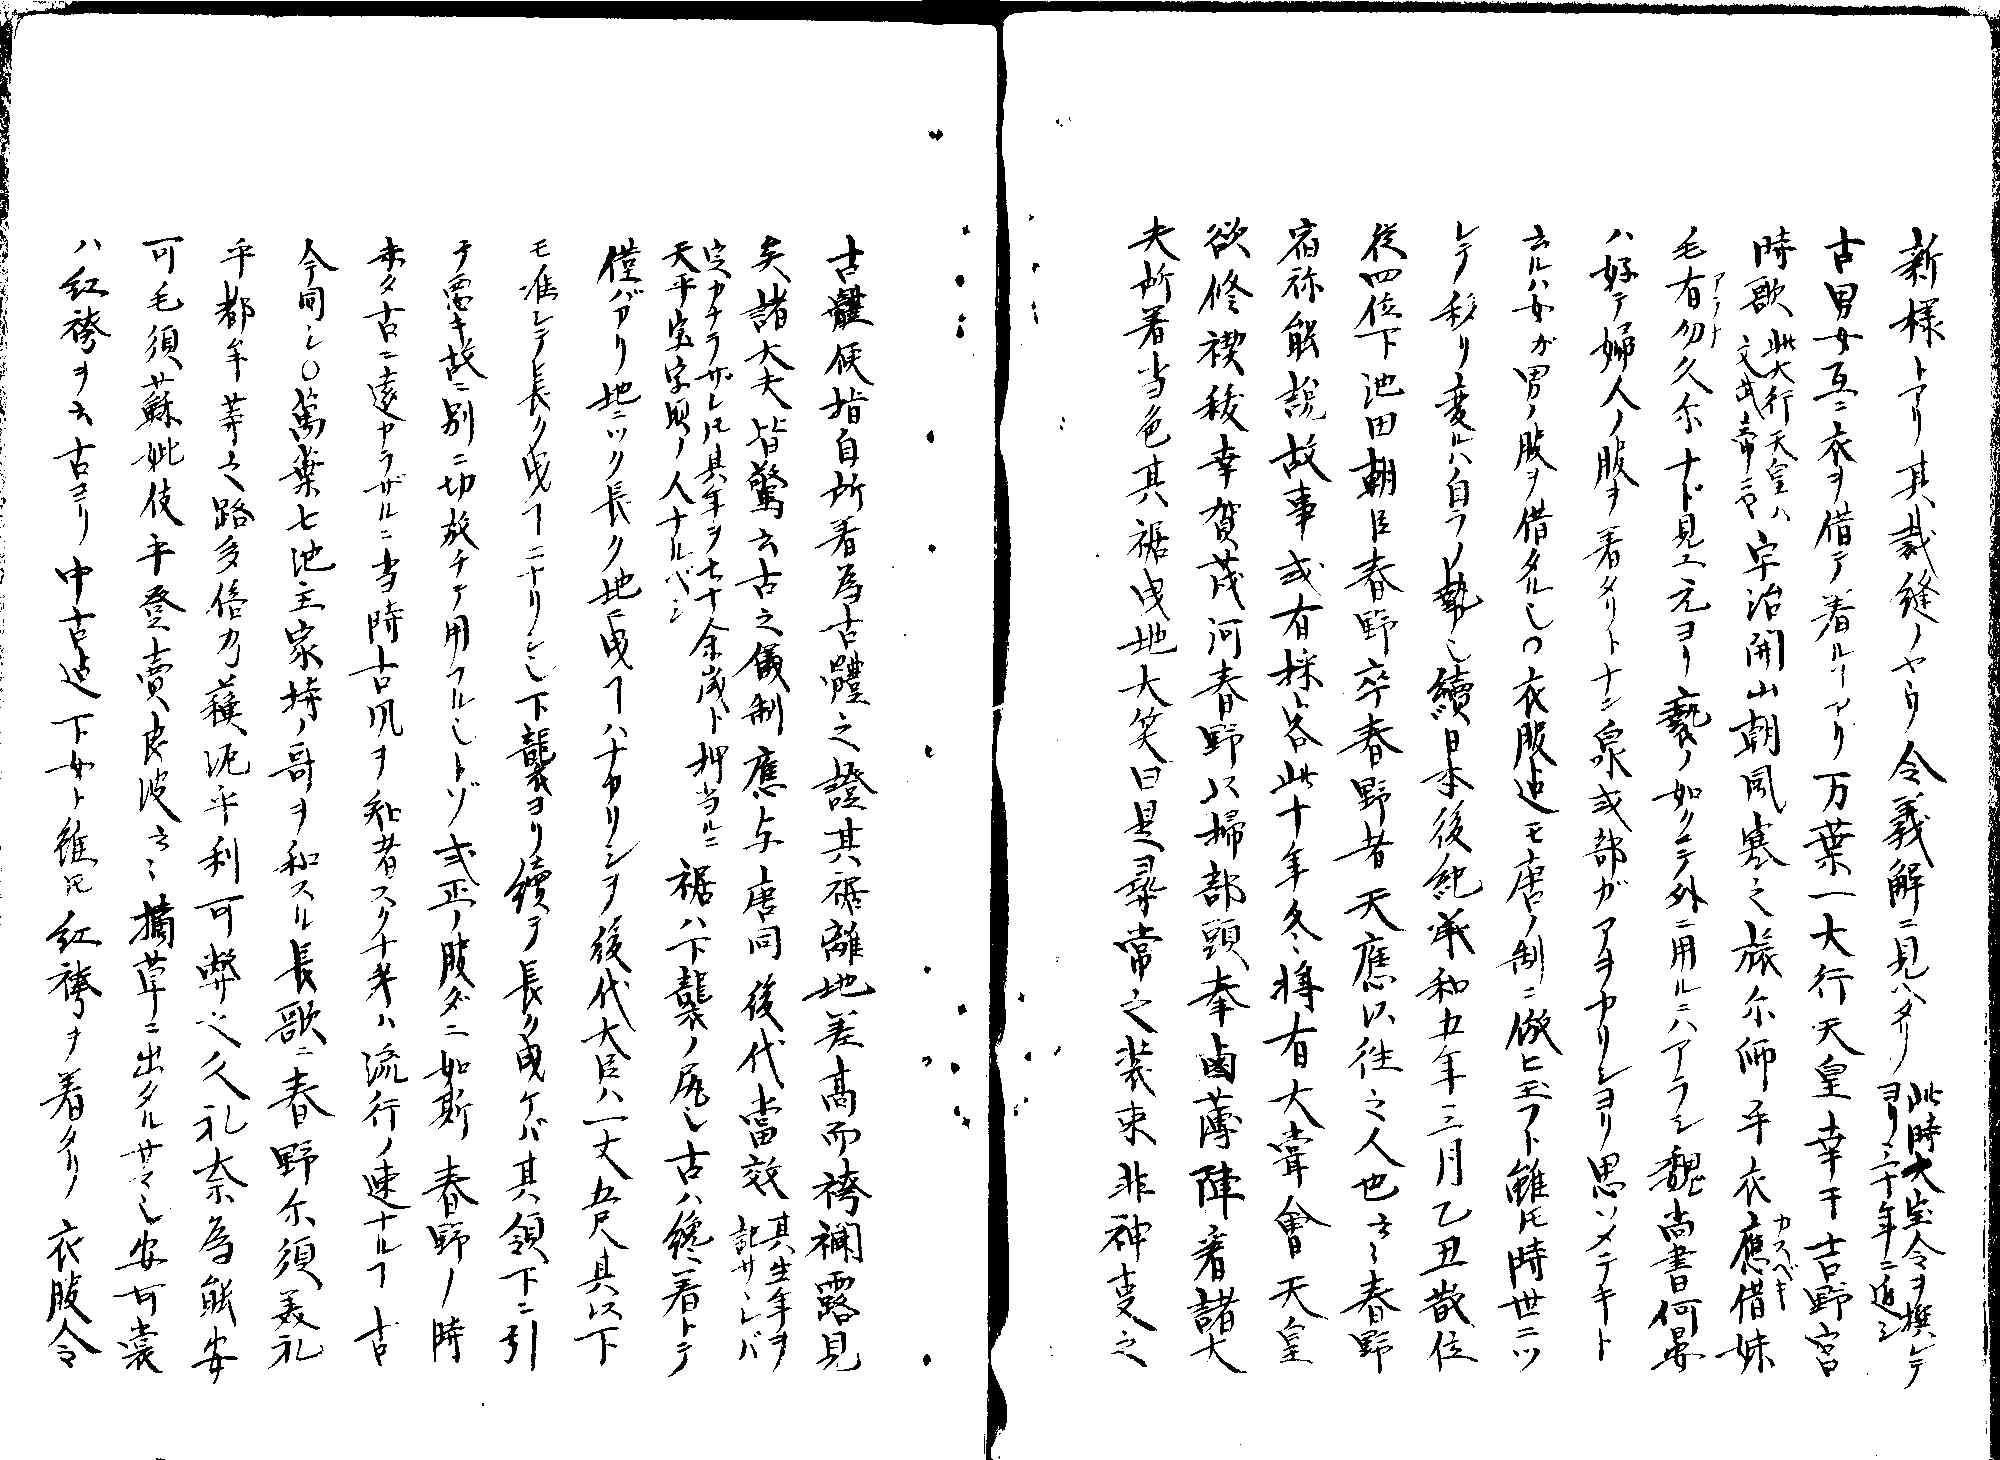 新様トアリ其裁縫ノヤウ令義解ニ見ヘタリ此時大宝令ヲ撰シテヨリ六十年ニ近シ
古男女互ニ衣ヲ借テ着ルヿアリ万葉一大行天皇幸于吉野宮
時歌此大行天皇ハ文武帝ニヤ宇治間山朝風寒之旅尓師手衣應借妹
毛有勿久尓ナド見エ元ヨリ褻ノ如クニテ外ニ用ルニハアラシ魏尚書何晏
ハ好テ婦人ノ服ヲ着タリトナン泉式部ガアヲカリシヨリ思ソメテキト
云ルハ女ガ男ノ服ヲ借タルし〇衣服迠モ唐ノ制ニ倣ヒ玉フト雖𪜈時世ニツ
レテ移リ変ルハ自ラノ勢し續日本後紀承和五年三月乙丑散位
從四位下池田朝臣春野卒春野者天應以往之人也云々春野
宿祢能説故事或有採容此十年冬將有大嘗會天皇
欲修禊秡幸賀茂河春野以掃部頭奉鹵薄陣着諸大
夫所着当色其裾曳地大笑曰是尋常之装束非神事之
古體便指自所着為古體之證其裾離地差高而袴襴露見
矣諸大夫皆驚云古之儀制應与唐同後代當效其生年ヲ記サヾレバ
定カナラザレ𪜈其年ヲ七十余歳ト押当ルニ天平宝字頃ノ人ナルベシ裾ハ下襲ノ尻し古ハ纔ニ着トテ
僅バカリ地ニツク長ク地ニ曳ヿハナカリシヲ後代大臣ハ一丈五尺其以下
モ准シテ長ク曳ヿニナリシし下襲ヨリ續ヲ長ク曳ケバ其領下ニ引
テ悪キ故ニ別ニ切放チテ用フルしトゾ或正ノ服ダニ如斯春野ノ時
未タ古ニ遠カラザルニ当時古風ヲ知者スクナキハ流行ノ速ナルヿ古
今同し〇萬葉七池主家持ノ哥ヲ和スル長歌ニ春野尓須美礼
乎都牟等之路多倍乃蘓泥乎利可弊之久礼奈為能安
可毛須蘇妣伎乎登賣良波云々摘草ニ出タルサマし安可裳
ハ紅袴ヲ云古ヨリ中古迠下女ト雖𪜈紅袴ヲ着タリ衣服令